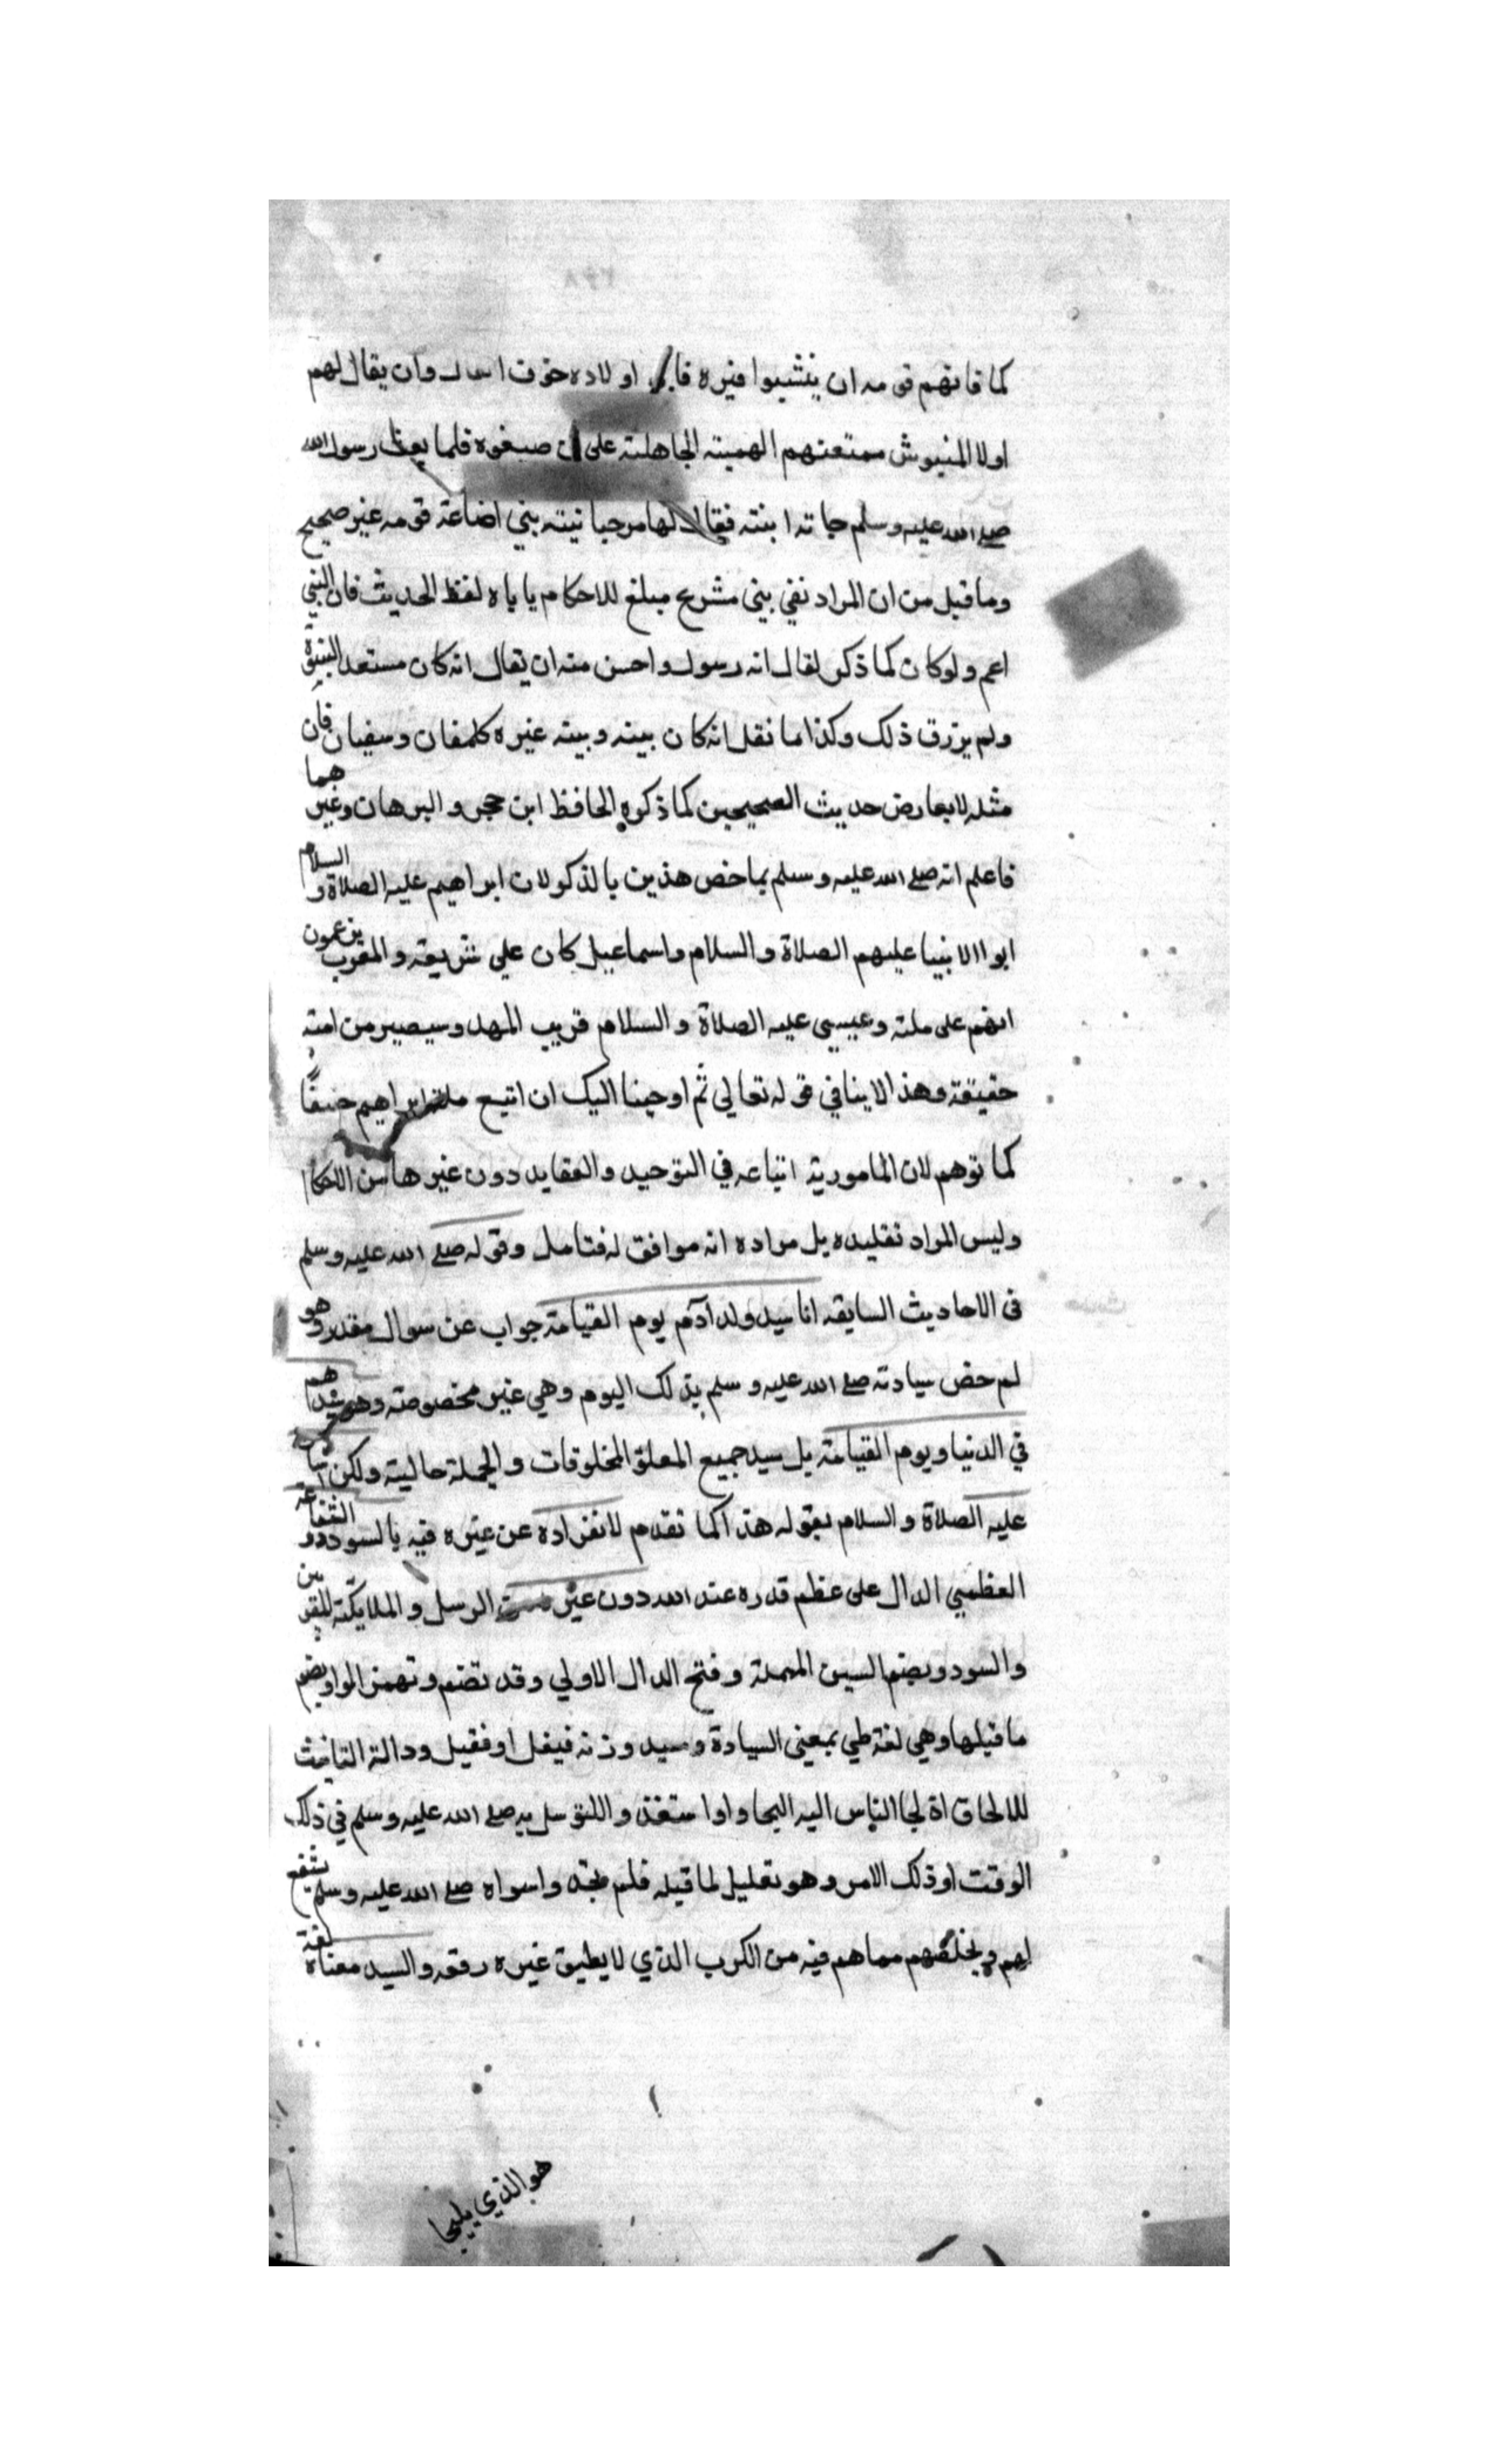 كما فاتهم قومه ان ينبشوا قبره فابي اولاده خوف اسال وان يقال لهم
اولاد المنبوش ممتعتهم الهمية الجاهلية على ان صبغوه فلما بعث رسول الله
صلى الله عليه وسلم جاته ابنته فقال لها مرحبا نيته بني اضاعة قومه غير صحيح
وما قيل من ان المراد نفي بني مشرع مبلغ للاحكام ياباه لفظ الحديث فان النبي
اعم ولو كان كما ذكر لقال انه رسول واحسن منه ان يقال انه كان مستعد النبوة
ولم يرزق ذلك وكذا ما نقل انه كان بينه وبينه غيره كلمفان وسفيان فان
مثله لا يعارض حديث الصحيحين كما ذكره الحافظ ابن حجر والبرهان وغيرهما
فاعلم انه صلى الله عليه وسلم بما خص هذين بالذكر لان ابراهيم عليه الصلاة والسلام
ابو الانبيا عليهم الصلاة والسلام واسماعيل كان على شريعته والعرب يزعمون
انهم على ملته وعيسى عليه الصلاة والسلام قريب المهد وسيصير من امته
حقيقة وهذا لا ينافي قوله تعالى ثم اوحينا اليك ان اتبع ملة ابراهيم حنيفًا
كما توهم لان المامور به اتباعه في التوحيد والعقايد دون غيرها من الاحكا
وليس المراد تقليده بل مراده انه موافق له فتامل وقوله صلى الله عليه وسلم
فى الاحاديث السابقه انا سيد ولد آدم يوم القيامة جواب عن سوال مقدر وهو
لم خص سيادته صلى الله عليه وسلم بذلك اليوم وهي غير مخصوصة وهو سيدهم
في الدنيا ويوم القيامة بل سيد جميع المخلوقات والجملة حالية ولكن
عليه الصلاة والسلام بقوله هذا كما تقدم لانفراده عن غيره فيه بالسودد والشفاعة
العظمي الدال على عظم قدره عند الله دون غير الرسل والملايكة المقربين
والسودد وبضم السين المهملة وفتح الدال الاولي وقد تضم وتهمز الواو بضم
ما قبلها وهي لغة طي بمعنى السيادة وسيد وزنه فيعل او فعيل ودالة التانيث
للالحاق اذ لجا الناس اليه التجاوا واستغذ واللتوسل به صلى الله عليه وسلم في ذلك
الوقت او ذلك الامر وهو تعليل لما قبله فلم يجدوا سواه صلى الله عليه وسلم يشفع
لهم ويخلصهم مما هم فيه من الكرب الذي لا يطيق غيره رفعه والسيد معناه لغة
هو الذي يلجا